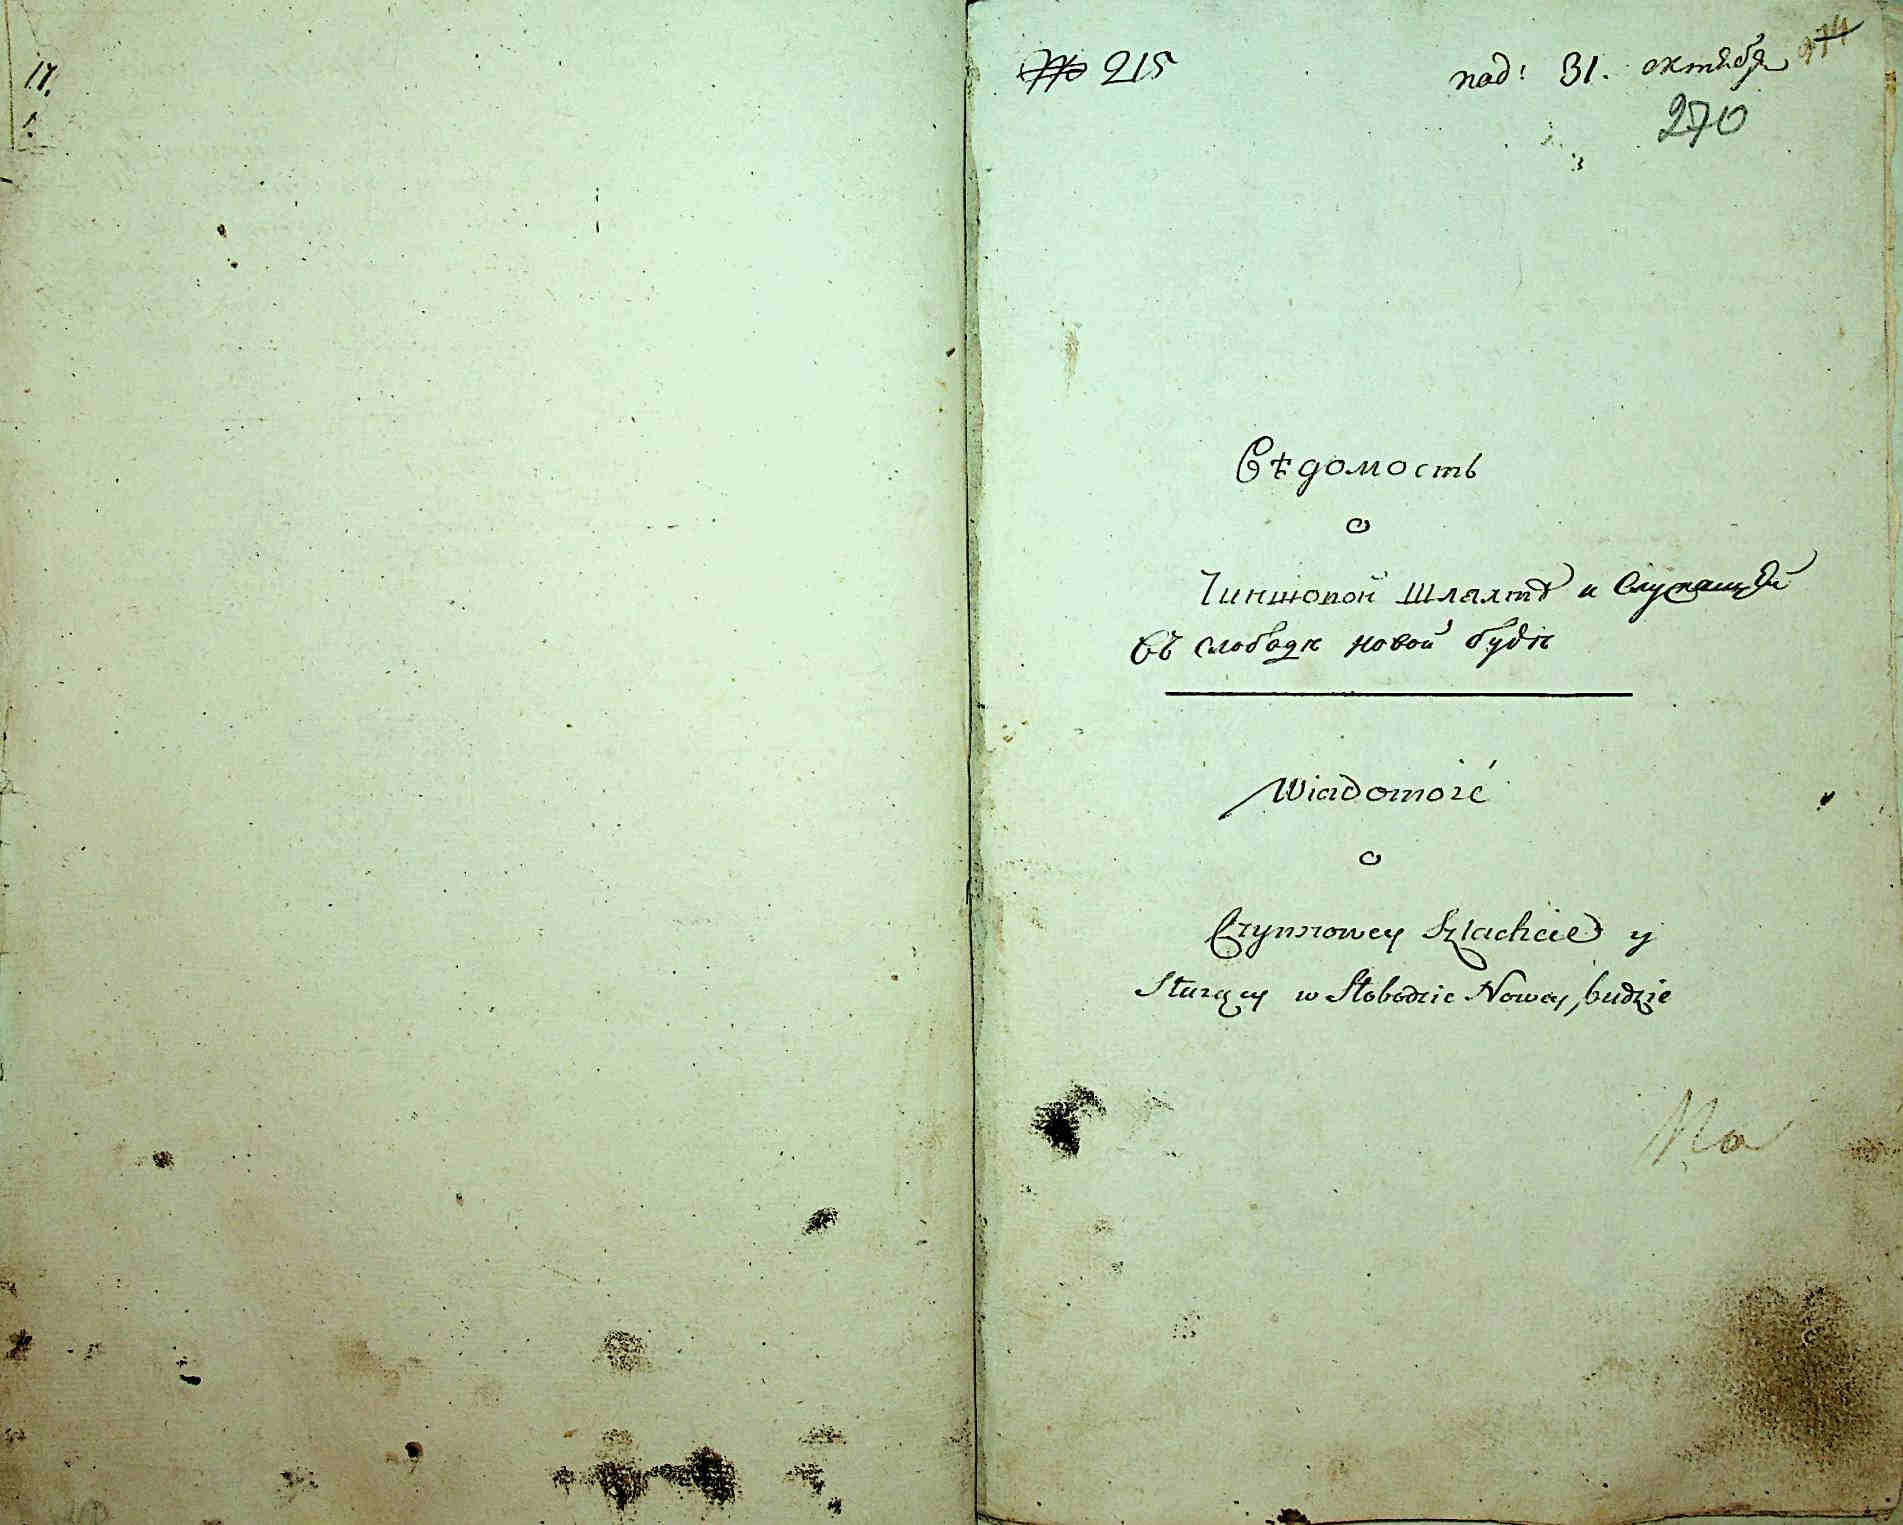 17.
1.
№ 215
под: 31. октября
274
270
Вѣдомость
о
Чиншовой Шляхтѣ и Служащей
въ слободѣ новой будѣ
Wiadomość
o
Czynszowey Szlachcie y
Służącey w Słobodzie Nowey budzie